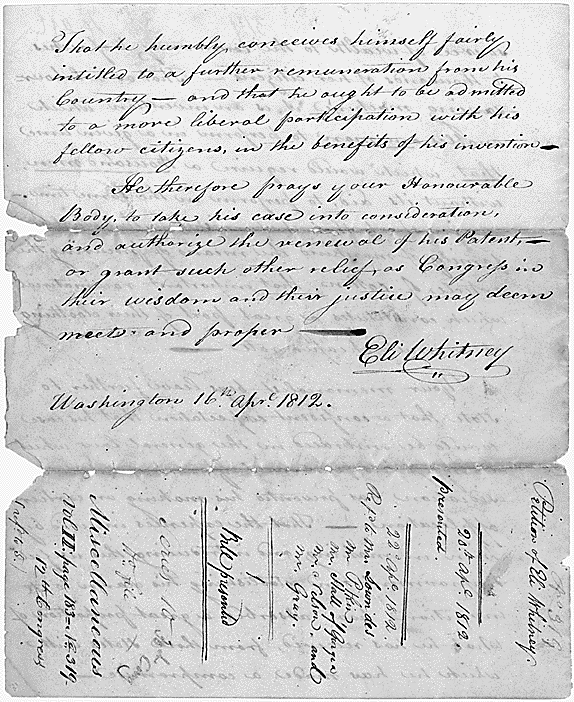 That he humbly conceives himself fairly
intitled to a further remuneration from his
Country — and that he ought to be admitted
to a more liberal participation with his
fellow citizens, in the benefits of his invention —
He therefore prays your Honourable
Body, to take his case into consideration,
and authorize the renewal of his Patent, —
or grant such other relief, as Congress in
their wisdom and their justice may deem
meet and proper —
Eli Whitney
Washington 16th Apr. 1812.
Petition of Eli Whitney.
20th Apl. 1812.
presented.
22d Apl. 1812.
Refd to Mr. Lowndes
Mr. Pitkin
Mr. Hall of Georgia
Mr. Nelson and
Mr. Gray
Bill presented
Miscellaneous
Vol. II. page
12th Congress